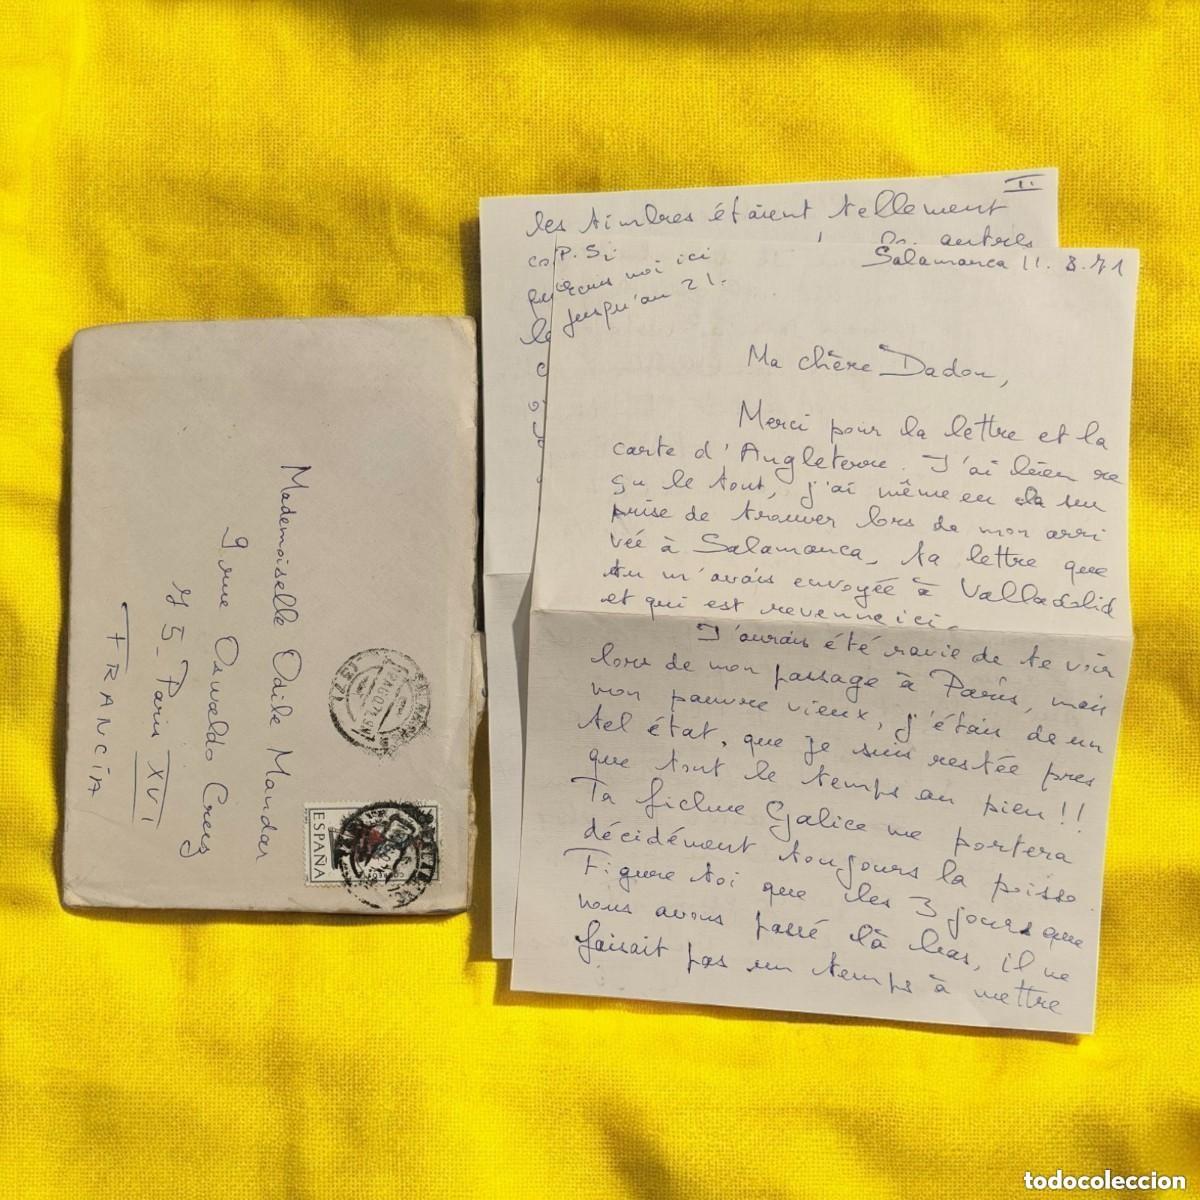 Mademoiselle Odile Mandar
9 rue Oswaldo Creez
75 - Paris XVI
FRANCIA
ESPAÑA
CORREOS
II
les timbres étaient tellement
autres
P. Si
moi ici
jusqu'au 21.
Salamanca 11. 8. 71
Ma chère Dadou,
Merci pour la lettre et la
carte d'Angleterre. J'ai bien re
çu le tout, j'ai même eu la sur
prise de trouver lors de mon arri
vée à Salamanca, ta lettre que
tu m'avais envoyée à Valladolid
et qui est revenue ici.
J'aurais été ravie de te voir
lors de mon passage à Paris, mais
mon pauvre vieux, j'étais de un
tel état, que je suis restée pres
que tout le temps au pieu !!
Ta fichue Galice me portera
décidément toujours la poisse.
Figure toi que les 3 jours que
nous avons passé là bas, il ne
faisait pas un temps à mettre
todocoleccion